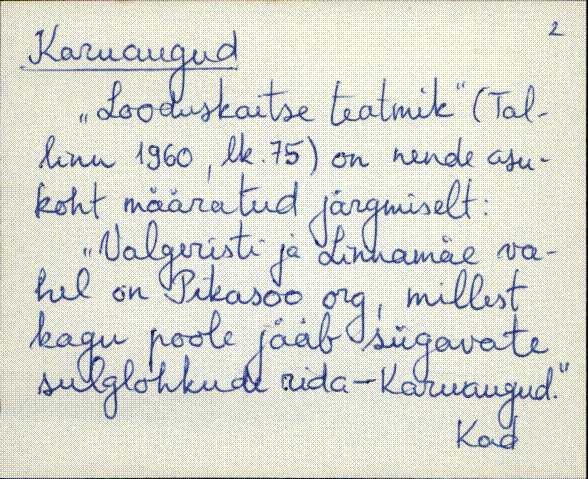 2
Karuaugud
„Looduskaitse teatmik" (Tal-
linn 1960, lk. 75) on nende asu-
koht määratud järgmiselt:
„Valgeristi ja Linnamäe va-
hel on Pikasoo org, millest
kagu poole jääb sügavate
sulglohkude rida - Karuaugud."
Kad